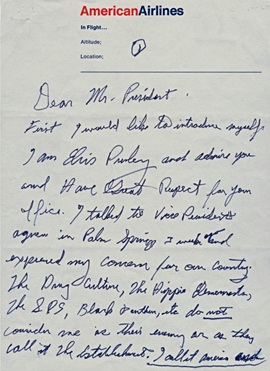 AmericanAirlines
In Flight...
Altitude;
Location;
1
Dear Mr. President.
First I would like to introduce myself.
I am Elvis Presley and admire you
and Have Great Respect for your
office. I talked to Vice President
agnew in Palm Springs I week and
expressed my concern for our Country.
The Drug Culture, The Hippie Elements,
The SDS, Black Panthers, etc do not
consider me as their enemy or as they
call it The Establishment. I call it america and